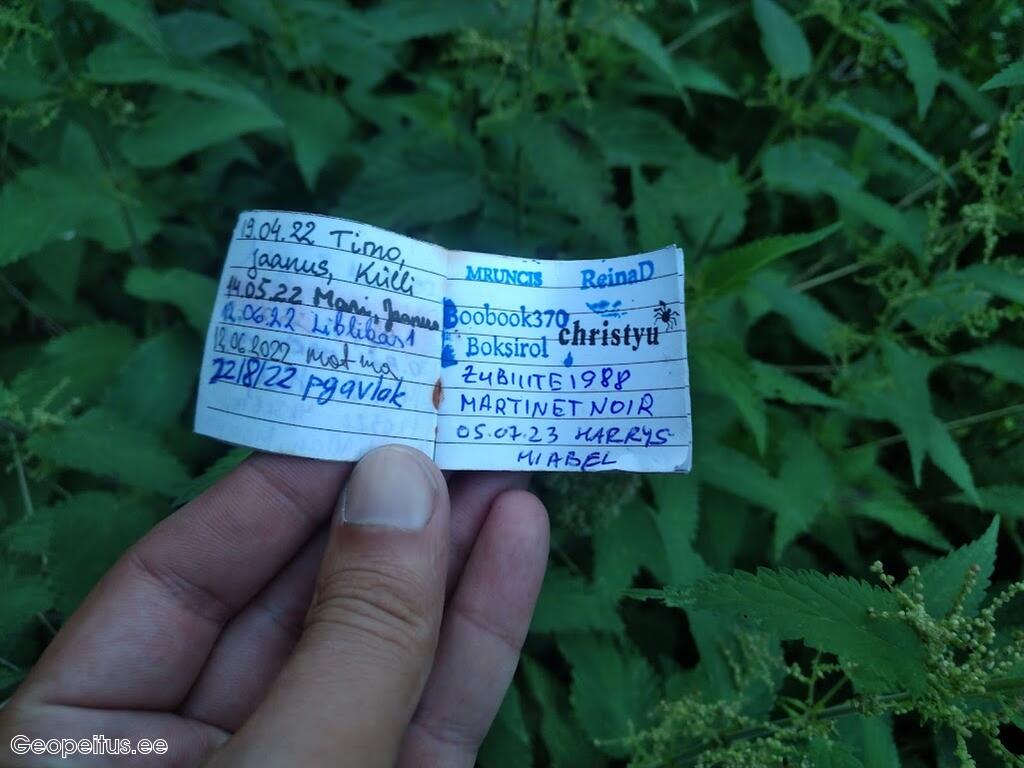 19.04.22 Timo,
Jaanus, Külli
14.05.22 Mari, Jaanus
12.06.22 Liblikas1
18.06.2022 motma
22/8/22 pgavlok
MRUNCIS ReinaD
Boobook370
christyu
Boksirol
ZUBIIITE1988
MARTINET NOIR
05.07.23 HARRYS
MIABEL
Geopeitus.ee